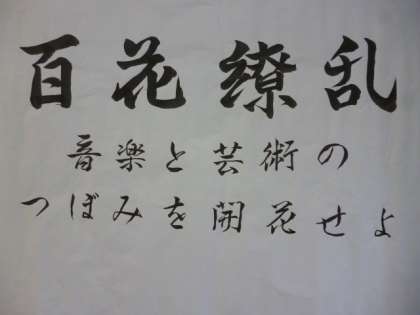 百花繚乱
音楽と芸術の
つぼみを開花せよ